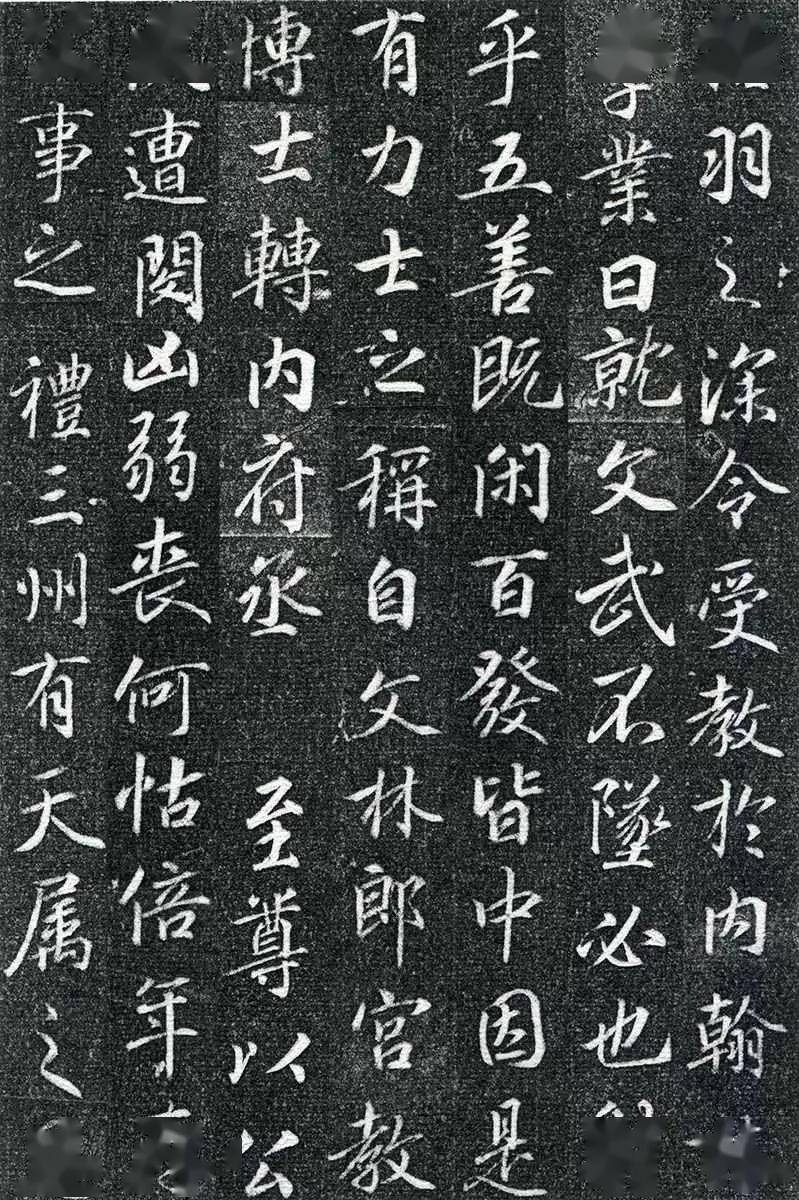 羽之深令受教於内翰
業日就文武不墜必也
乎五善既閑百發皆中因是
有力士之稱自文林郎宮教
博士轉内府丞 至尊以公
遭閔凶弱喪何怙倍年
事之禮三州有天属之